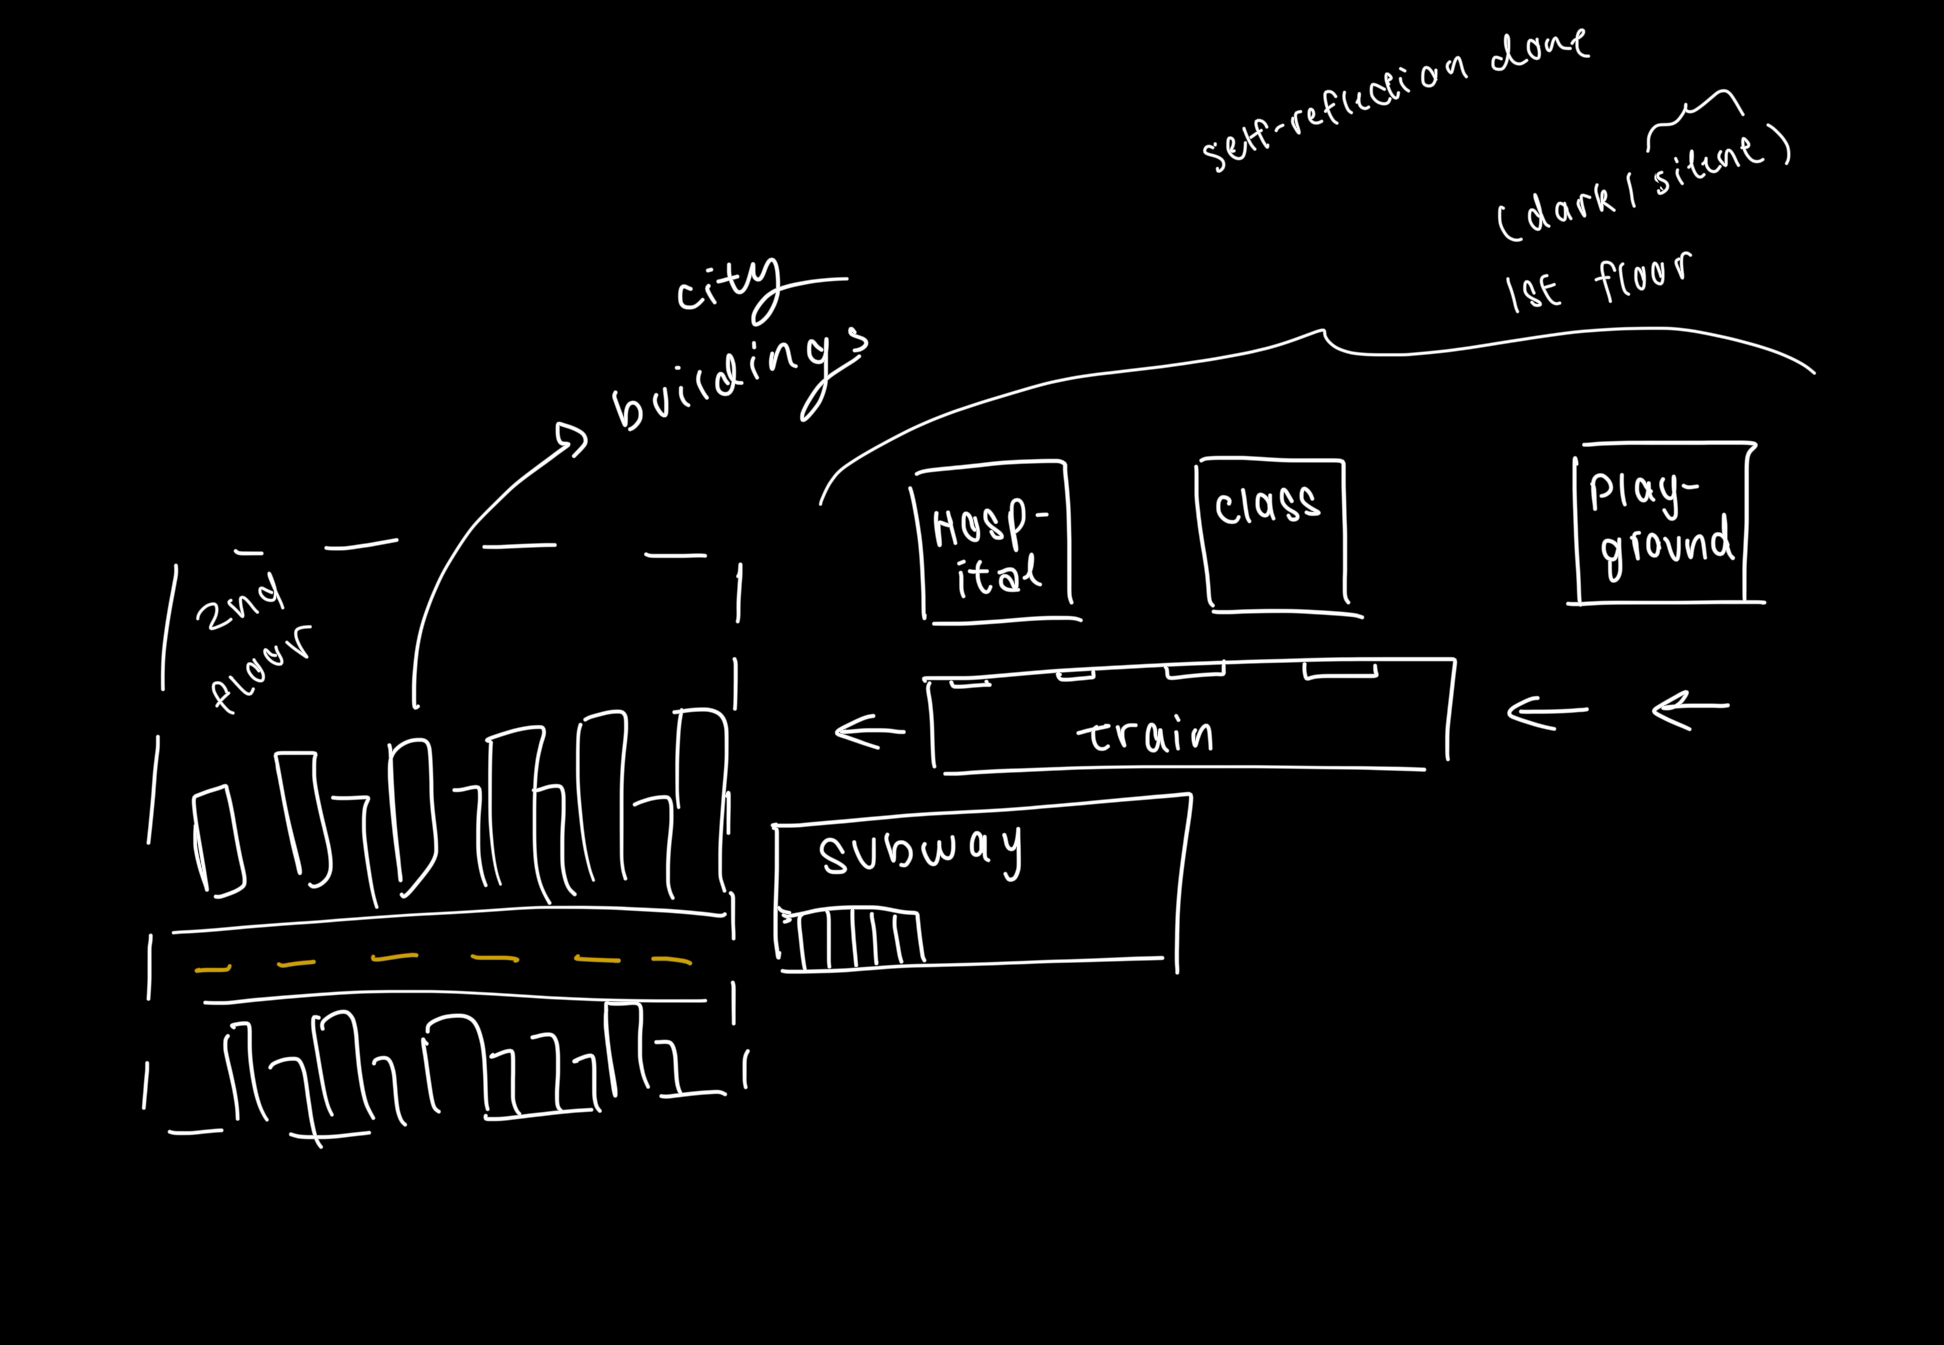 self-reflection done
(dark / silence)
1st floor
city
buildings
Hosp-
ital
class
Play-
ground
2nd
floor
train
subway